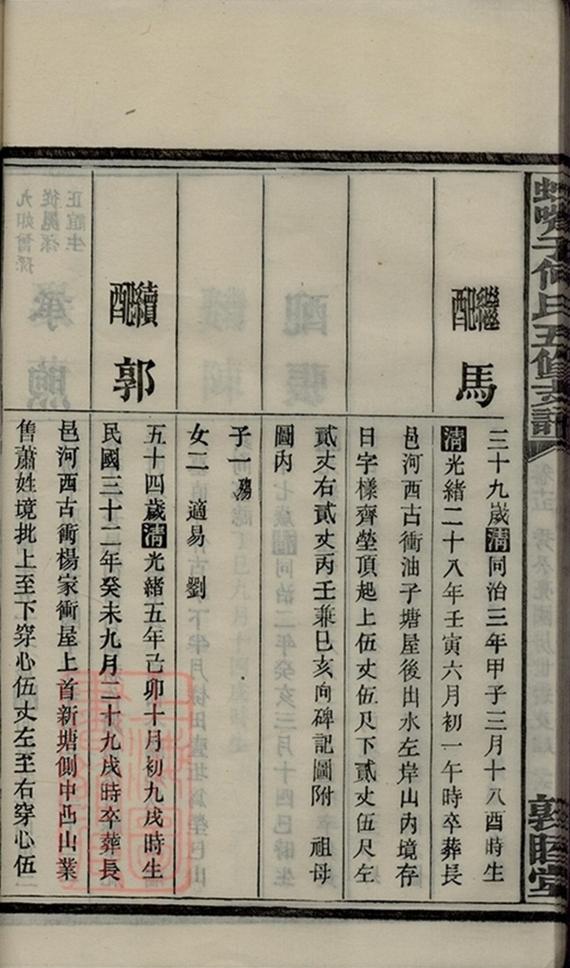 何氏五修支記
敦睦堂
繼配 馬
三十九歲清同治三年甲子三月十八酉時生
清光緒二十八年壬寅六月初一午時卒葬長
邑河西古衝油子塘屋後出水左岸山內境存
日字樣齊塋頂起上伍丈伍尺下貳丈伍尺左
貳丈右貳丈丙壬兼巳亥向碑記圖附 祖母
圖內
子一殤
女二 適易 劉
續配 郭
五十四歲清光緒五年己卯十月初九戌時生
民國三十二年癸未九月二十九戌時卒葬長
邑河西古衝楊家衝屋上首新塘側中凸山業
售蕭姓境批上至下穿心伍丈左至右穿心伍